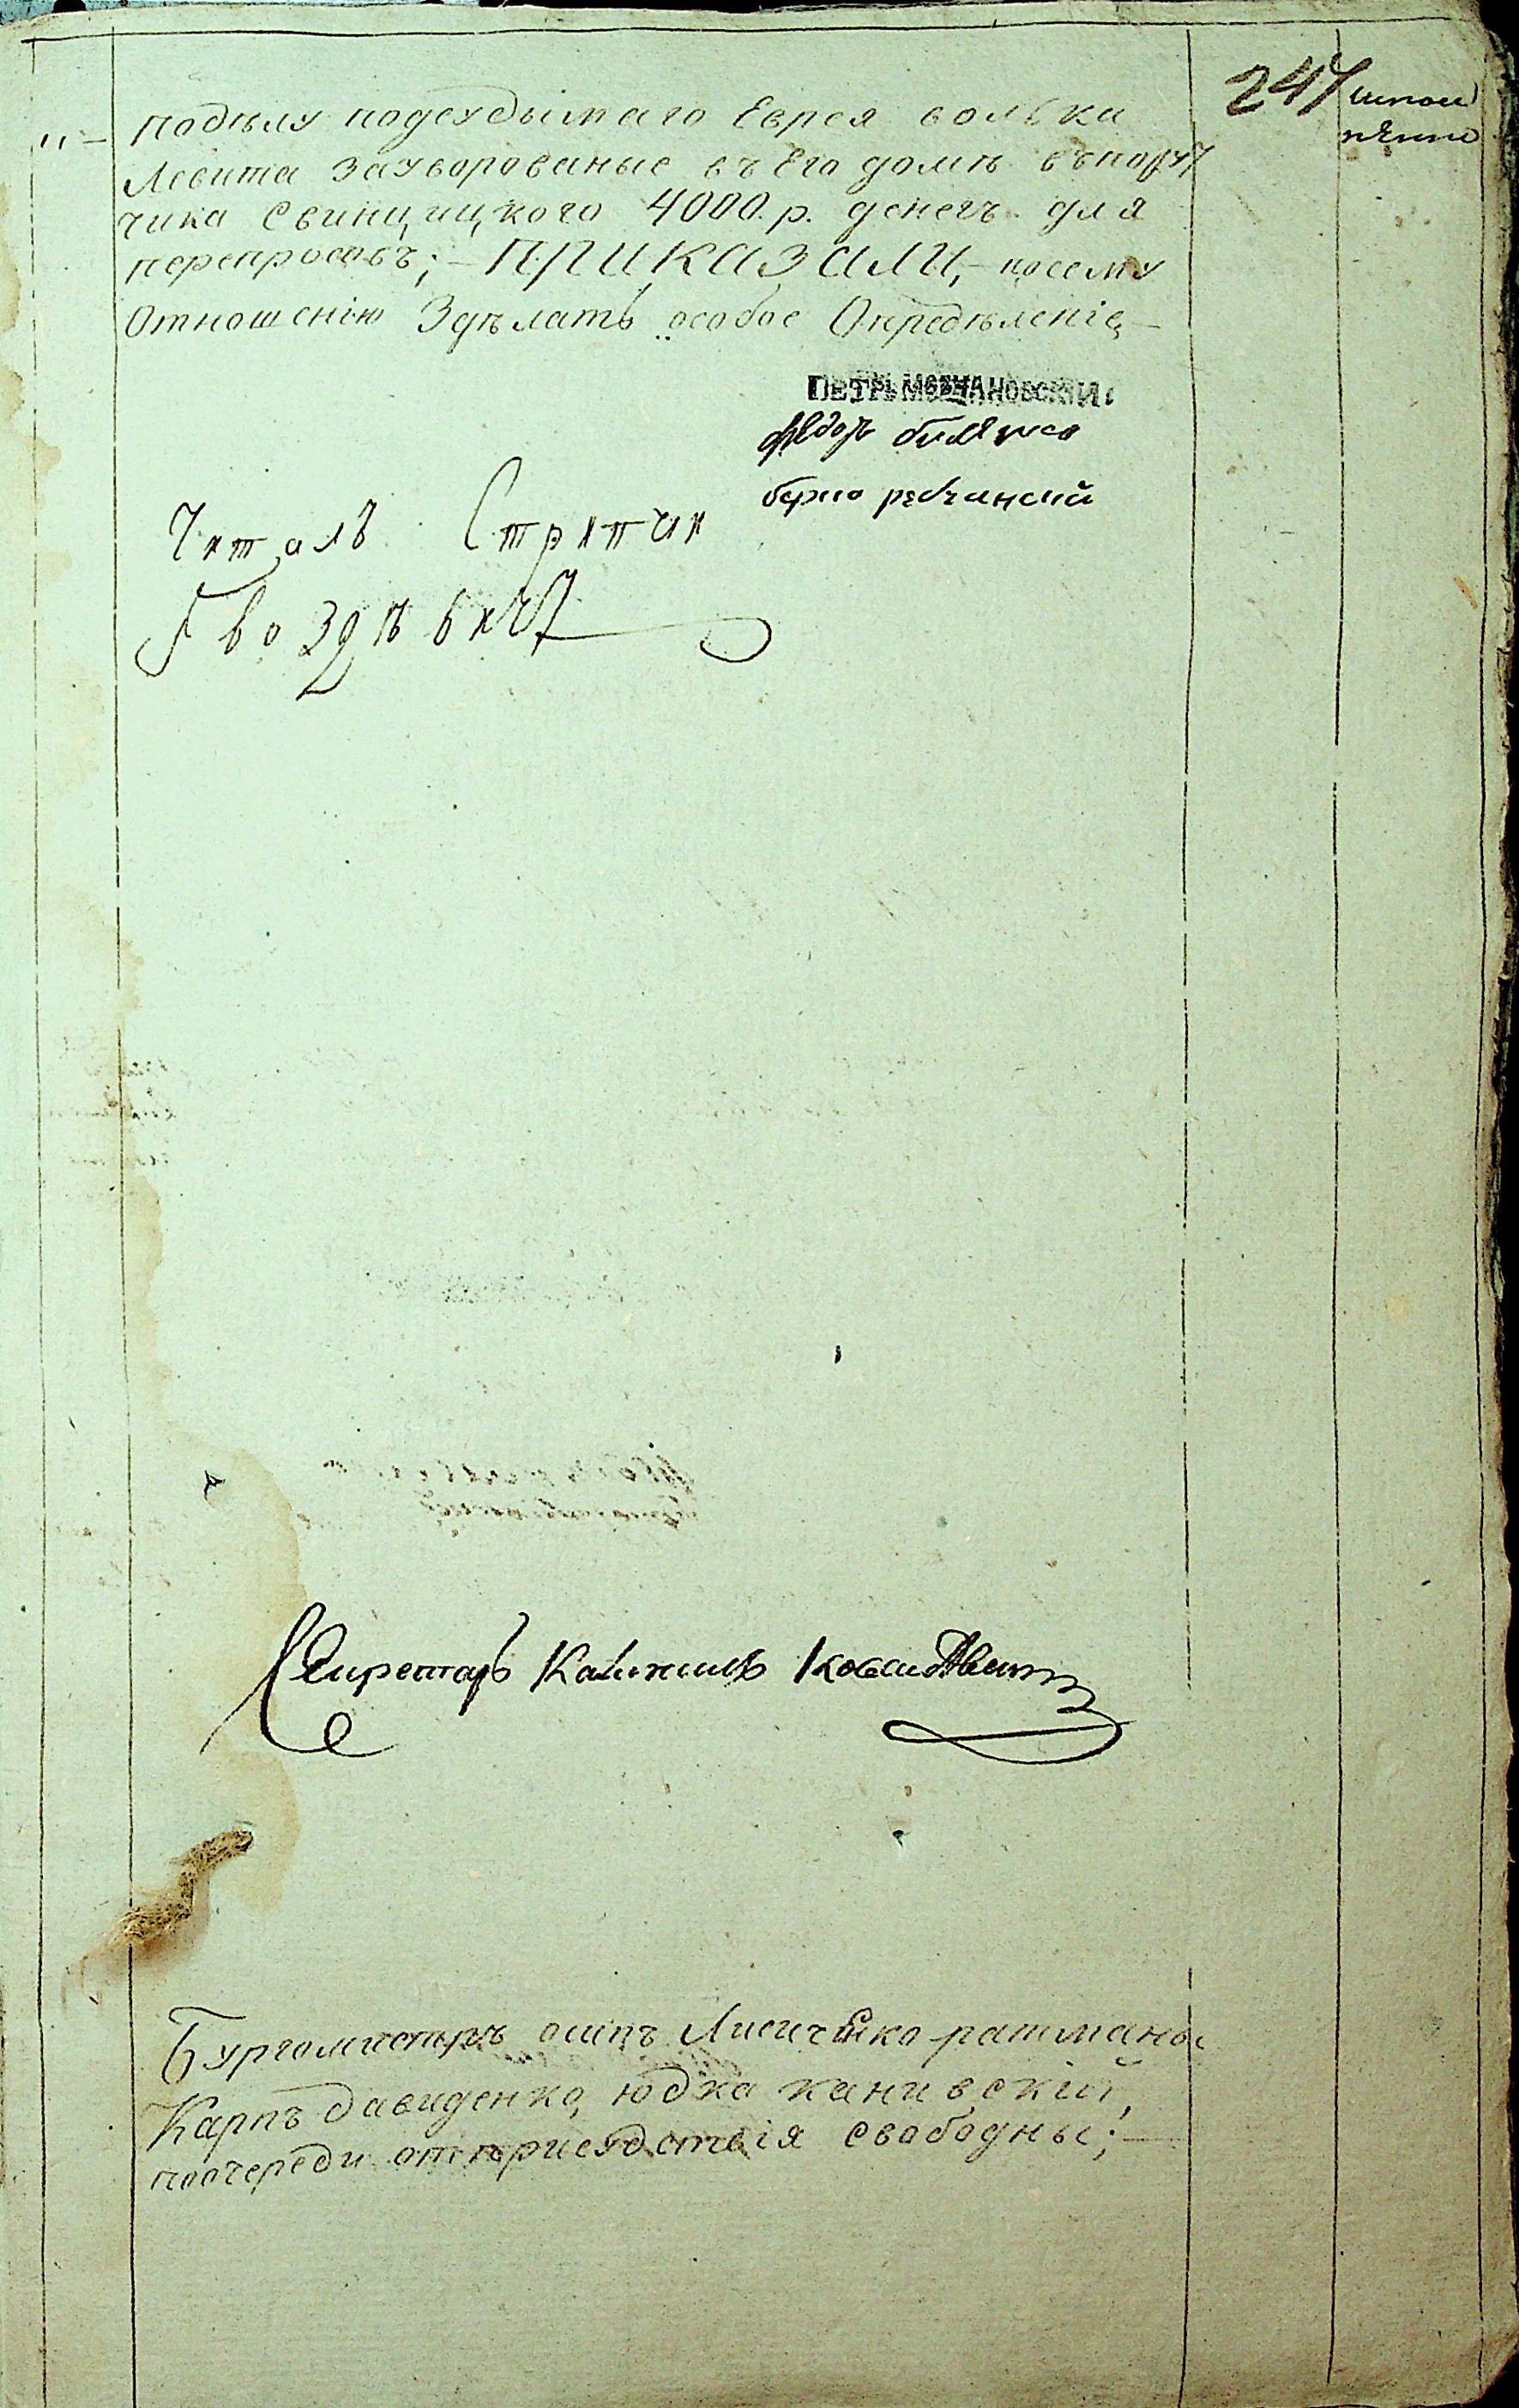 247
исполнено
подѣлу подсудимаго Еврея волька
Левита заухворованые въ Его домѣ въпору
чика Свинцицкого 4000. р. денегъ для
перепросовъ; – ПРИКАЗАЛИ, – посему
Отношенію Здѣлать особое Опредѣленіе –
ПЕТРЪ МОВЧАНОВСКИЙ
Федоръ
Читалъ Стряпчи
Гвоздѣвичъ
Секретарь
Бургомистръ осипъ Лисичько ратманы
Карпъ давиденко, юдка каниевскій,
поочереди отъприсудствія свободны; –